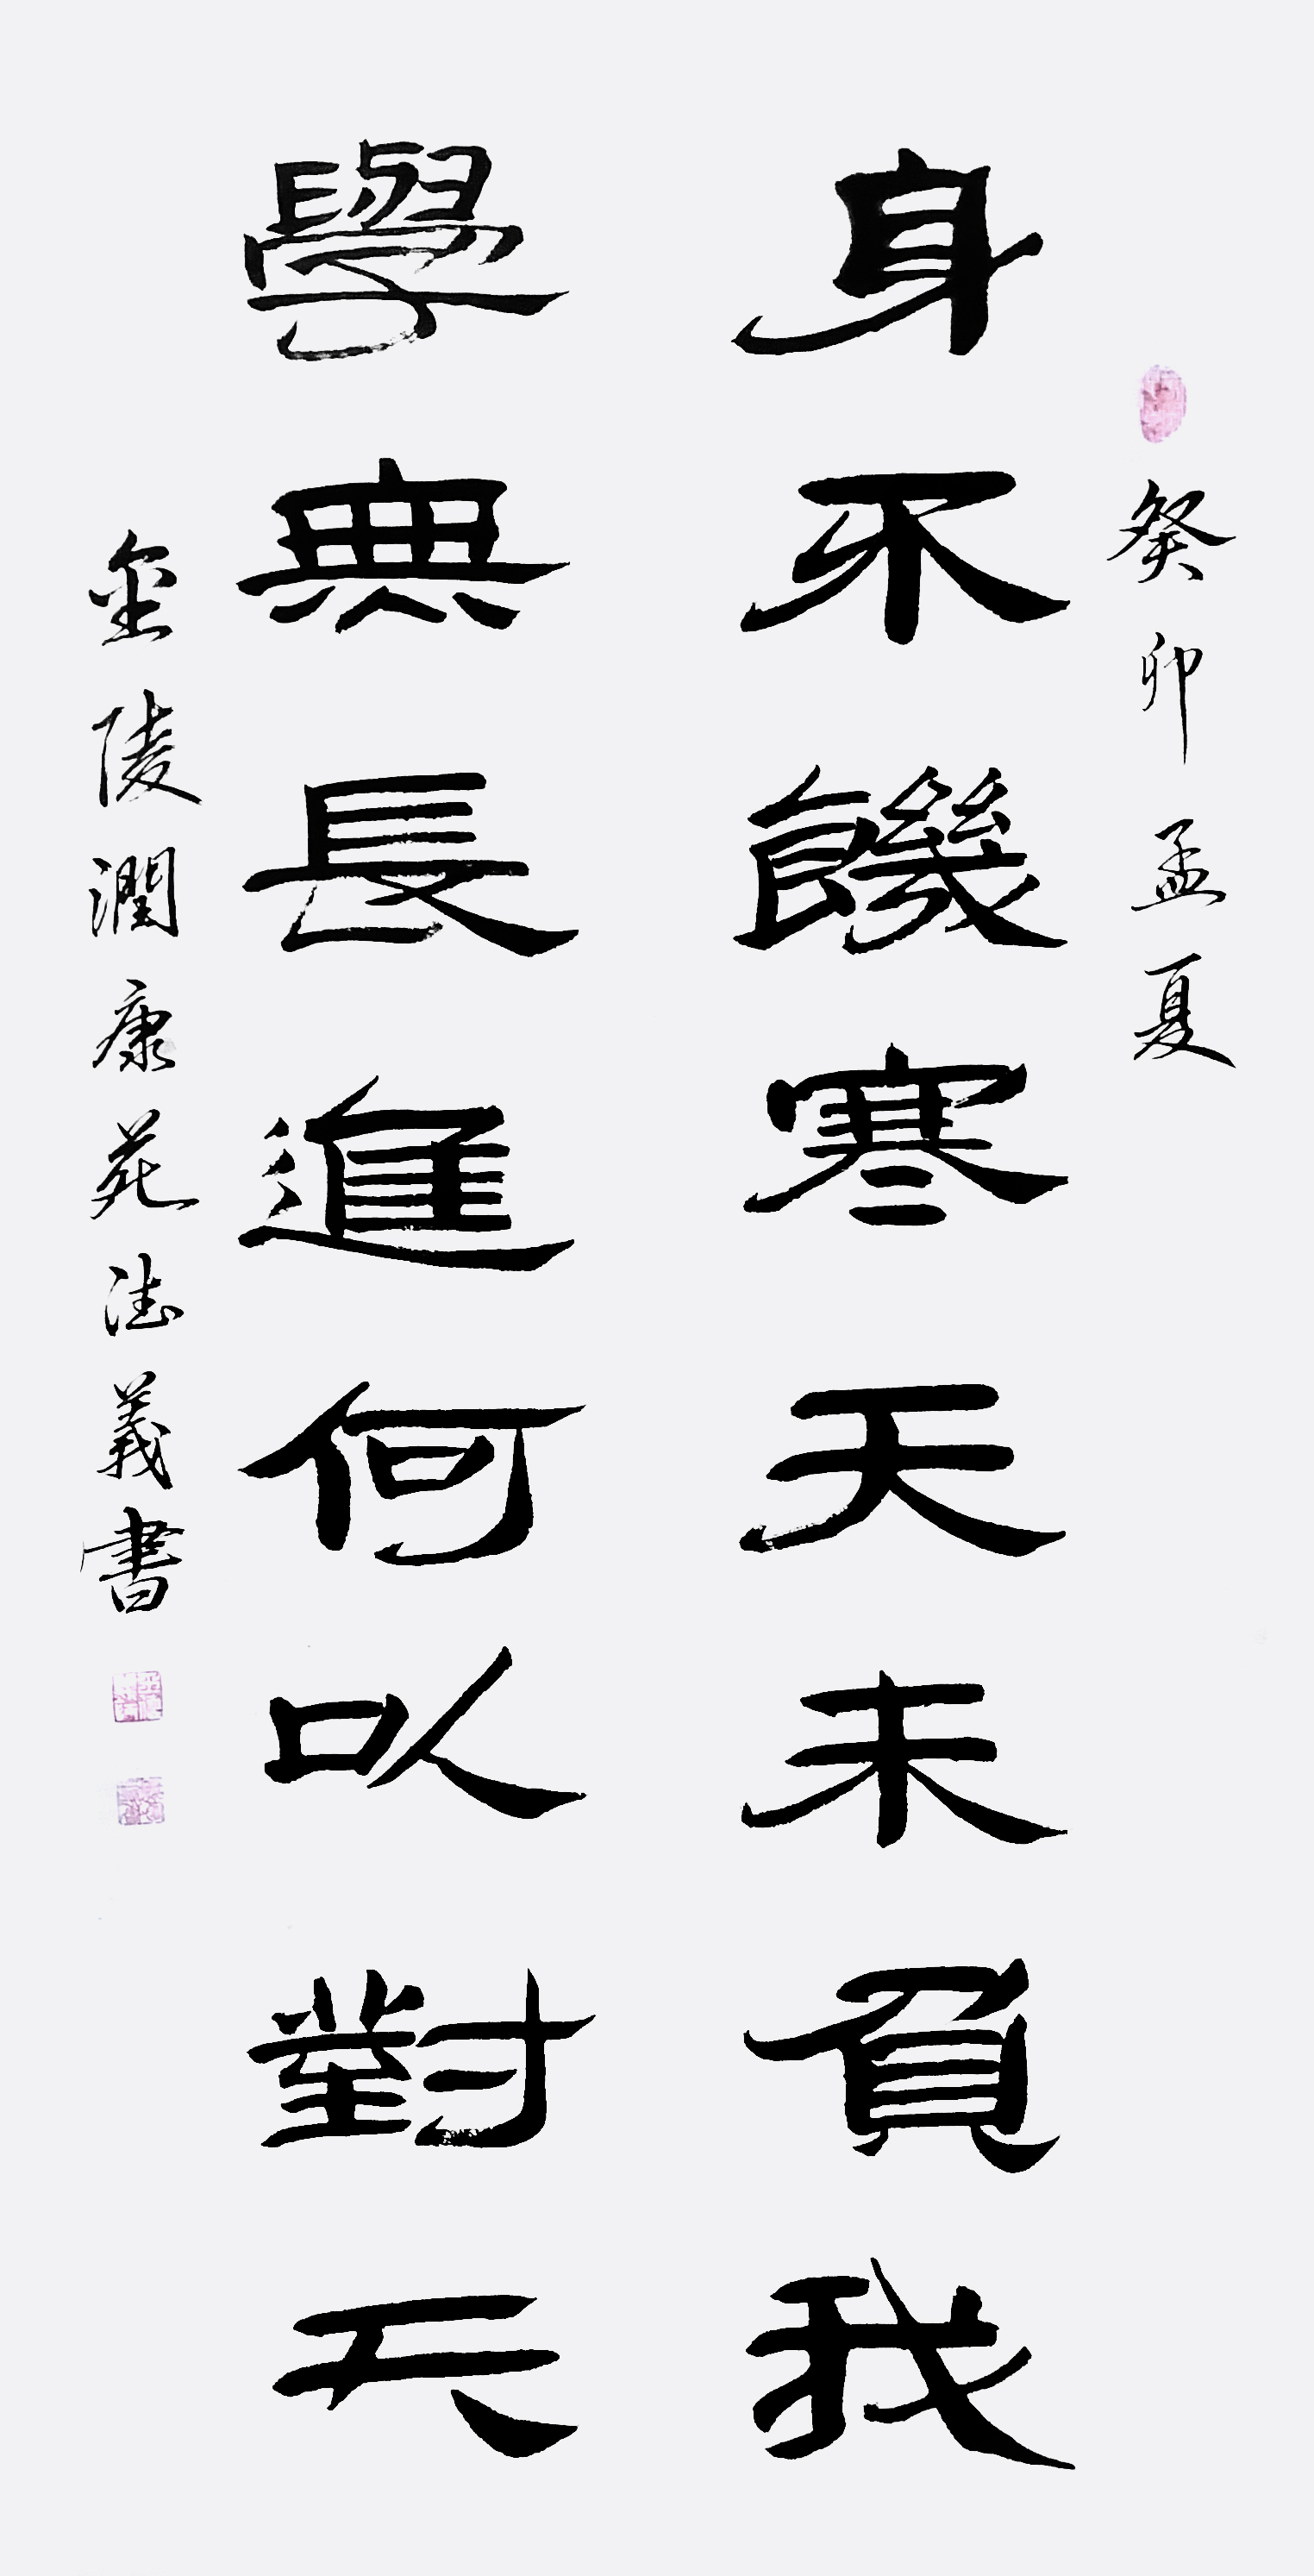 癸卯孟夏
身不饑寒天未負我
學無長進何以對天
金陵潤康苑法義書